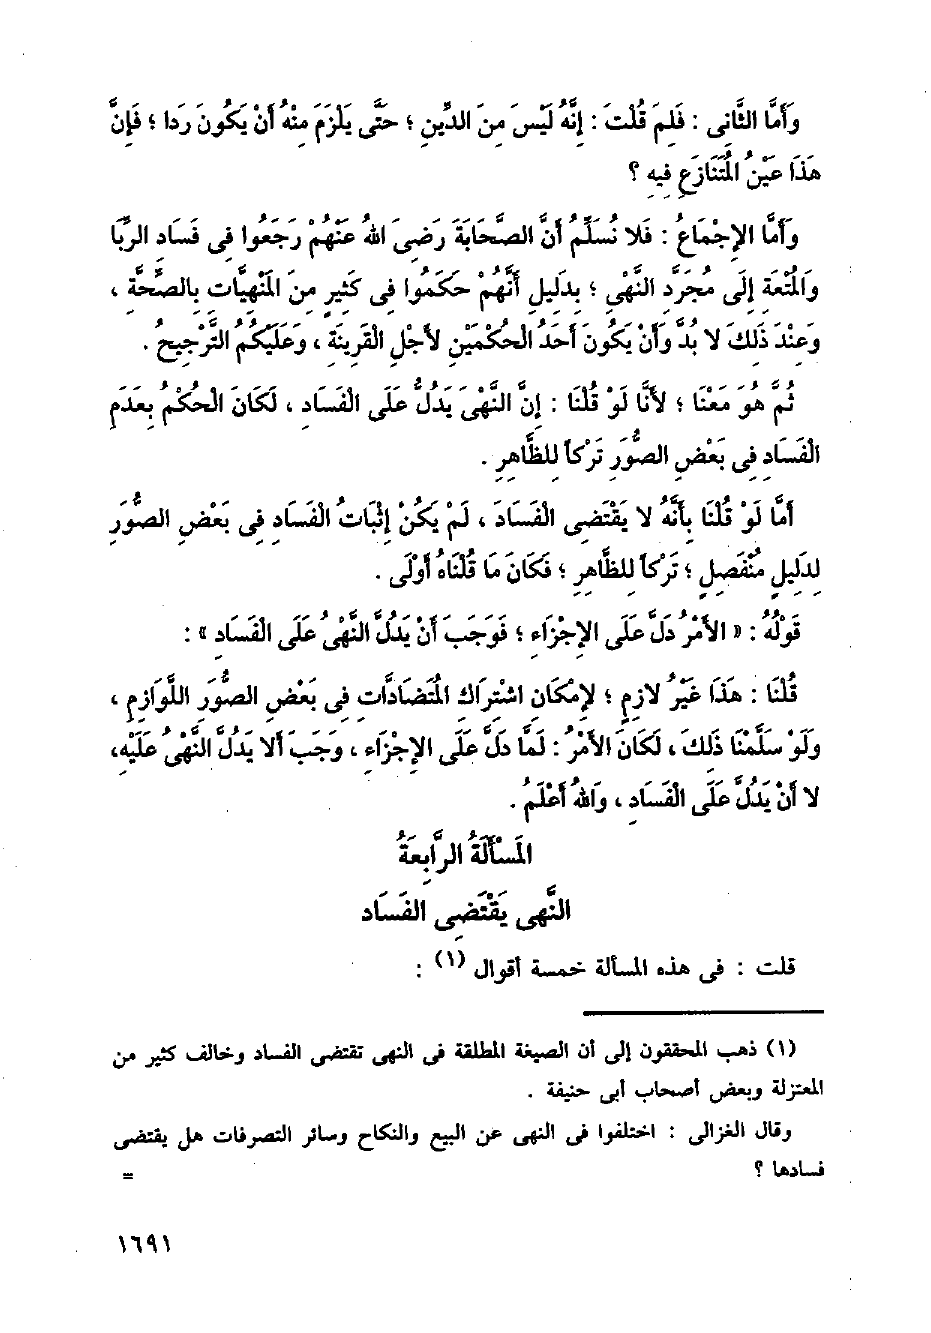 وَأَمَّا الثَّانِى : فَلِمَ قُلْتَ : إِنَّهُ لَيْسَ مِنَ الدِّينِ ؛ حَتَّى يَلْزَمَ مِنْهُ أَنْ يَكُونَ رَدا ؛ فَإِنَّ
هَذَا عَيْنُ الْمُتَنَازَعِ فِيهِ ؟
وَأَمَّا الإِجْمَاعُ : فَلا نُسَلِّمُ أَنَّ الصَّحَابَةَ رَضِىَ اللهُ عَنْهُمْ رَجَعُوا فِى فَسَادِ الرِّبَا
وَالْمُتْعَةِ إِلَى مُجَرَّدِ النَّهْىِ ؛ بِدَلِيلِ أَنَّهُمْ حَكَمُوا فِى كَثِيرٍ مِنَ الْمَنْهِيَّاتِ بِالصِّحَّةِ ،
وَعِنْدَ ذَلِكَ لا بُدَّ وَأَنْ يَكُونَ أَحَدُ الْحُكْمَيْنِ لأَجْلِ الْقَرِينَةِ ، وَعَلَيْكُمُ التَّرْجِيحُ .
ثُمَّ هُوَ مَعْنَا ؛ لأَنَّا لَوْ قُلْنَا : إِنَّ النَّهْىَ يَدُلُّ عَلَى الْفَسَادِ ، لَكَانَ الْحُكْمُ بِعَدَمِ
الْفَسَادِ فِى بَعْضِ الصُّوَرِ تَرْكاً لِلظَّاهِرِ .
أَمَّا لَوْ قُلْنَا بِأَنَّهُ لا يَقْتَضِى الْفَسَادَ ، لَمْ يَكُنْ إِثْبَاتُ الْفَسَادِ فِى بَعْضِ الصُّوَرِ
لِدَلِيلٍ مُنْفَصِلٍ ؛ تَرْكاً لِلظَّاهِرِ ؛ فَكَانَ مَا قُلْنَاهُ أَوْلَى .
قَوْلُهُ : « الأَمْرُ دَلَّ عَلَى الإِجْزَاءِ ؛ فَوَجَبَ أَنْ يَدُلَّ النَّهْىُ عَلَى الْفَسَادِ » :
قُلْنَا : هَذَا غَيْرُ لازِمٍ ؛ لإِمْكَانِ اشْتِرَاكِ الْمُتَضَادَّاتِ فِى بَعْضِ الصُّوَرِ اللَّوَازِمِ ،
وَلَوْ سَلَّمْنَا ذَلِكَ ، لَكَانَ الأَمْرُ : لَمَّا دَلَّ عَلَى الإِجْزَاءِ ، وَجَبَ أَلا يَدُلَّ النَّهْىُ عَلَيْهِ،
لا أَنْ يَدُلَّ عَلَى الْفَسَادِ ، وَاللهُ أَعْلَمُ .
الْمَسْأَلَةُ الرَّابِعَةُ
النَّهى يَقْتَضِى الفَسَاد
قلت : فى هذه المسألة خمسة أقوال (١) :
(١) ذهب المحققون إلى أن الصيغة المطلقة فى النهى تقتضى الفساد وخالف كثير من
المعتزلة وبعض أصحاب أبى حنيفة .
وقال الغزالى : اختلفوا فى النهى عن البيع والنكاح وسائر التصرفات هل يقتضى
فسادها ؟ =
١٦٩١